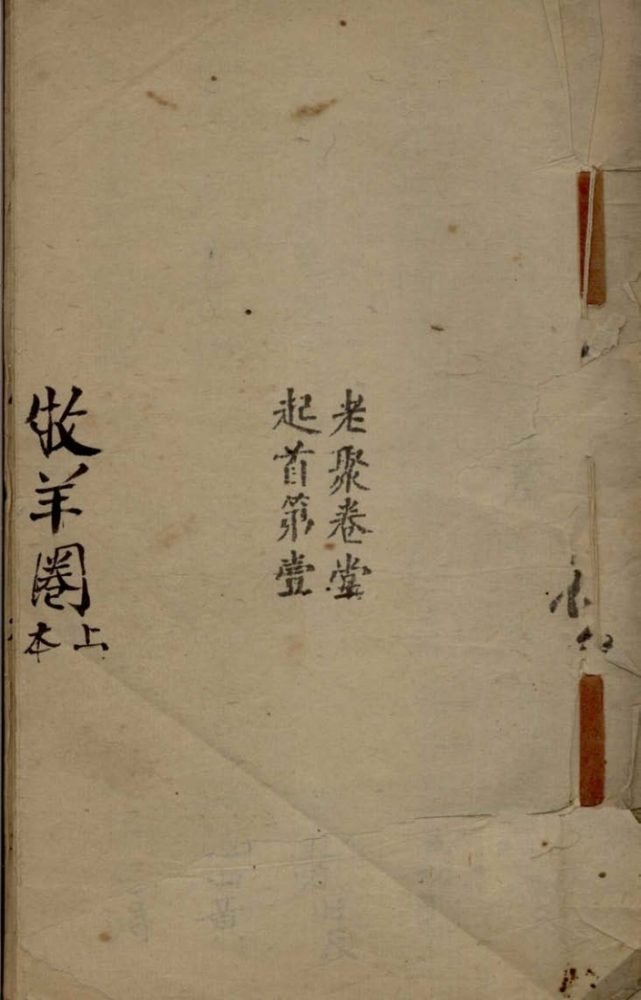 老聚卷堂
起首第壹
牧羊圈
上本